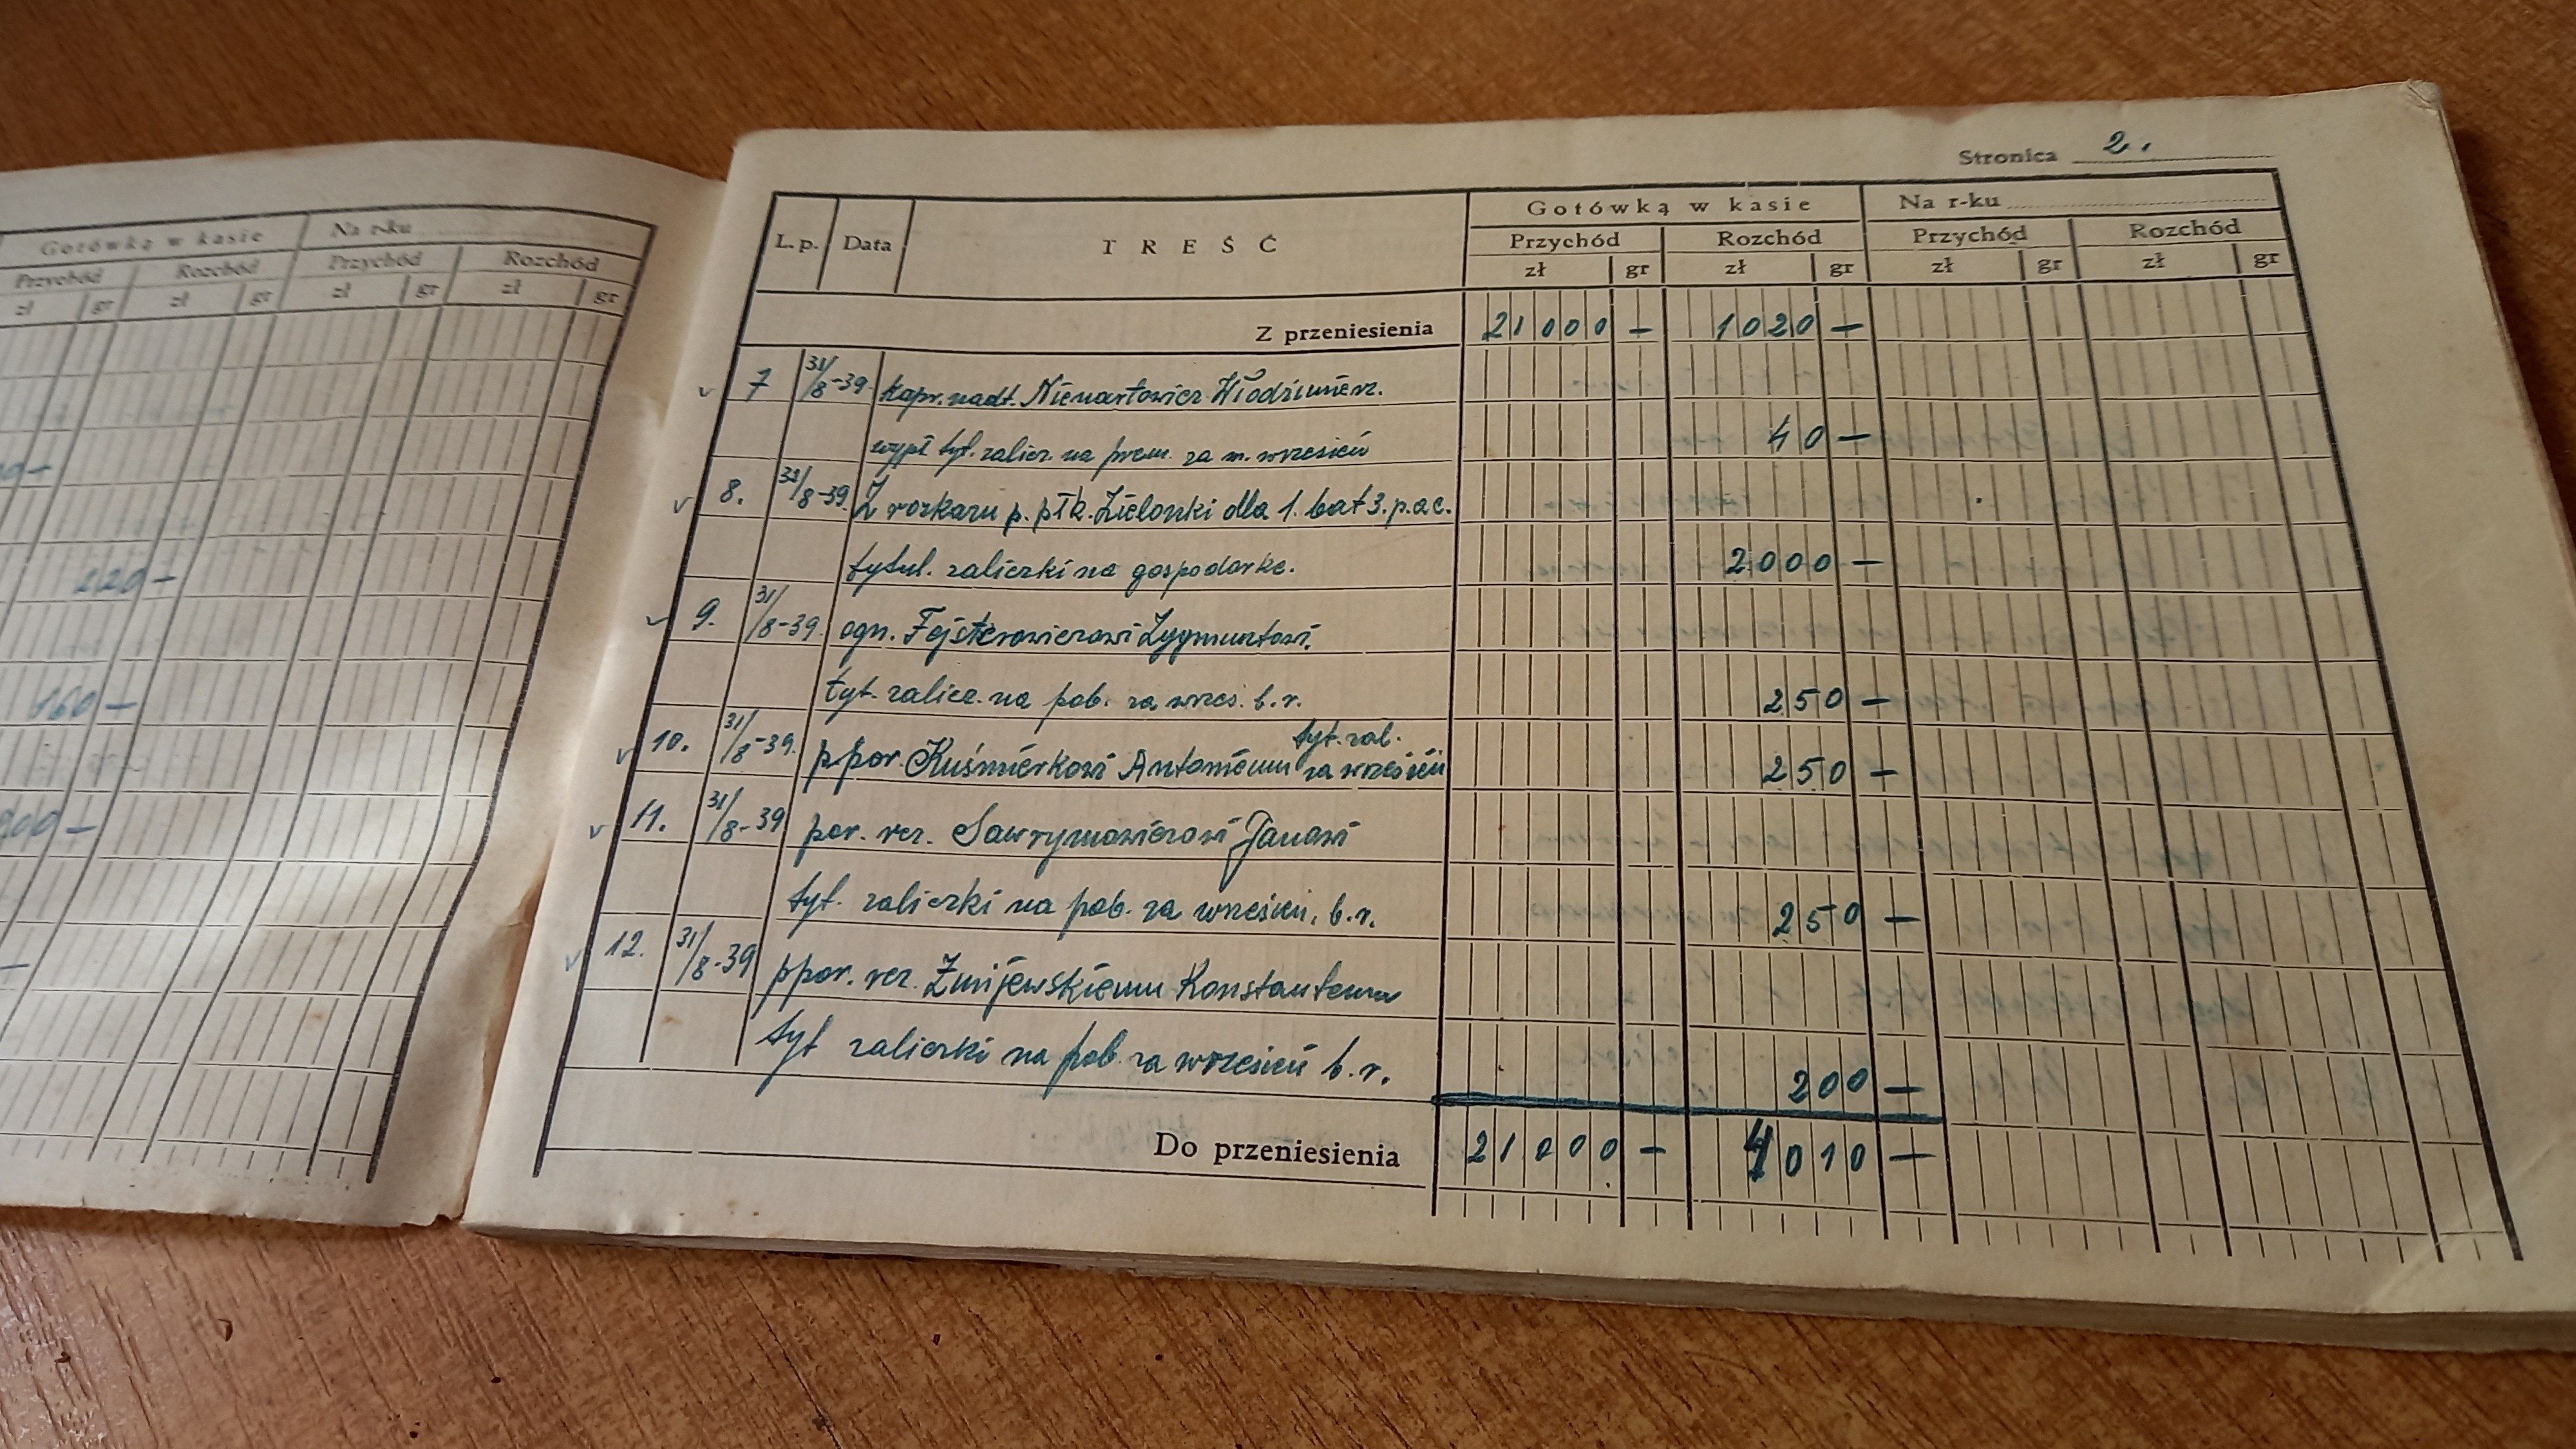 Gotówką w kasie Na r-ku
Przychód Rozchód Przychód Rozchód
zł gr zł gr zł gr zł gr
220 —
160 —
Stronica 2.
L. p. Data TREŚĆ Gotówką w kasie Na r-ku
Przychód Rozchód Przychód Rozchód
zł gr zł gr zł gr zł gr
Z przeniesienia 21000 — 1020 —
v 7 31/8-39. kapr. nadt. Niewartowicz Włodzimierz.
wypł tyt. zalicz. na prem. za m. wrzesień 40 —
v 8. 31/8-39. Z rozkazu p. płk. Zielonki dla 1. bat 3. p.a.c.
tytuł. zaliczki na gospodarkę. 2000 —
v 9. 31/8-39. ogn. Fejsterowiczowi Zygmuntowi.
tyt. zalicz. na pob. za wrześ. b.r. 250 —
tyt. zal.
v 10. 31/8-39. ppor. Kuśmierkowi Antoniemu za wrzesień 250 —
v 11. 31/8-39 por. rez. Sawrymowiczowi Janowi
tyt. zaliczki na pob. za wrzesień, b.r. 250 —
v 12. 31/8-39 ppor. rez. Żmijewskiemu Konstantemu
tyt zaliczki na pob. za wrzesień b.r. 200 —
Do przeniesienia 21000 — 4010 —